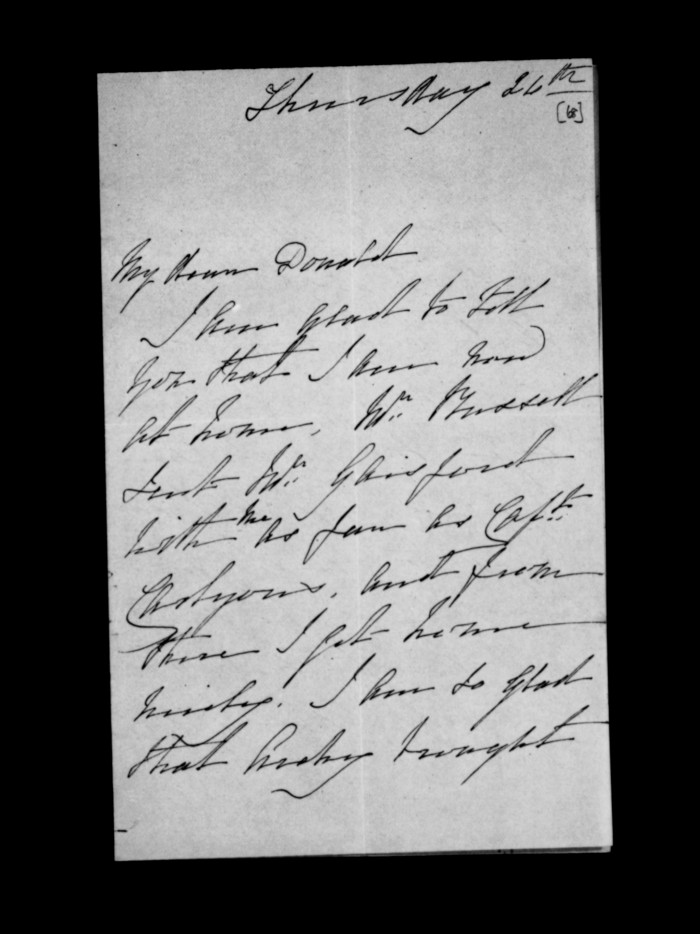 Thursday 26th
[68]
My dear Donald
I am glad to tell
you that I am now
at home, Mr. Russell
sent Mr. Gaisford
with me as far as Capt.
and from
there I got home
nicely. I am so glad
that Archy brought